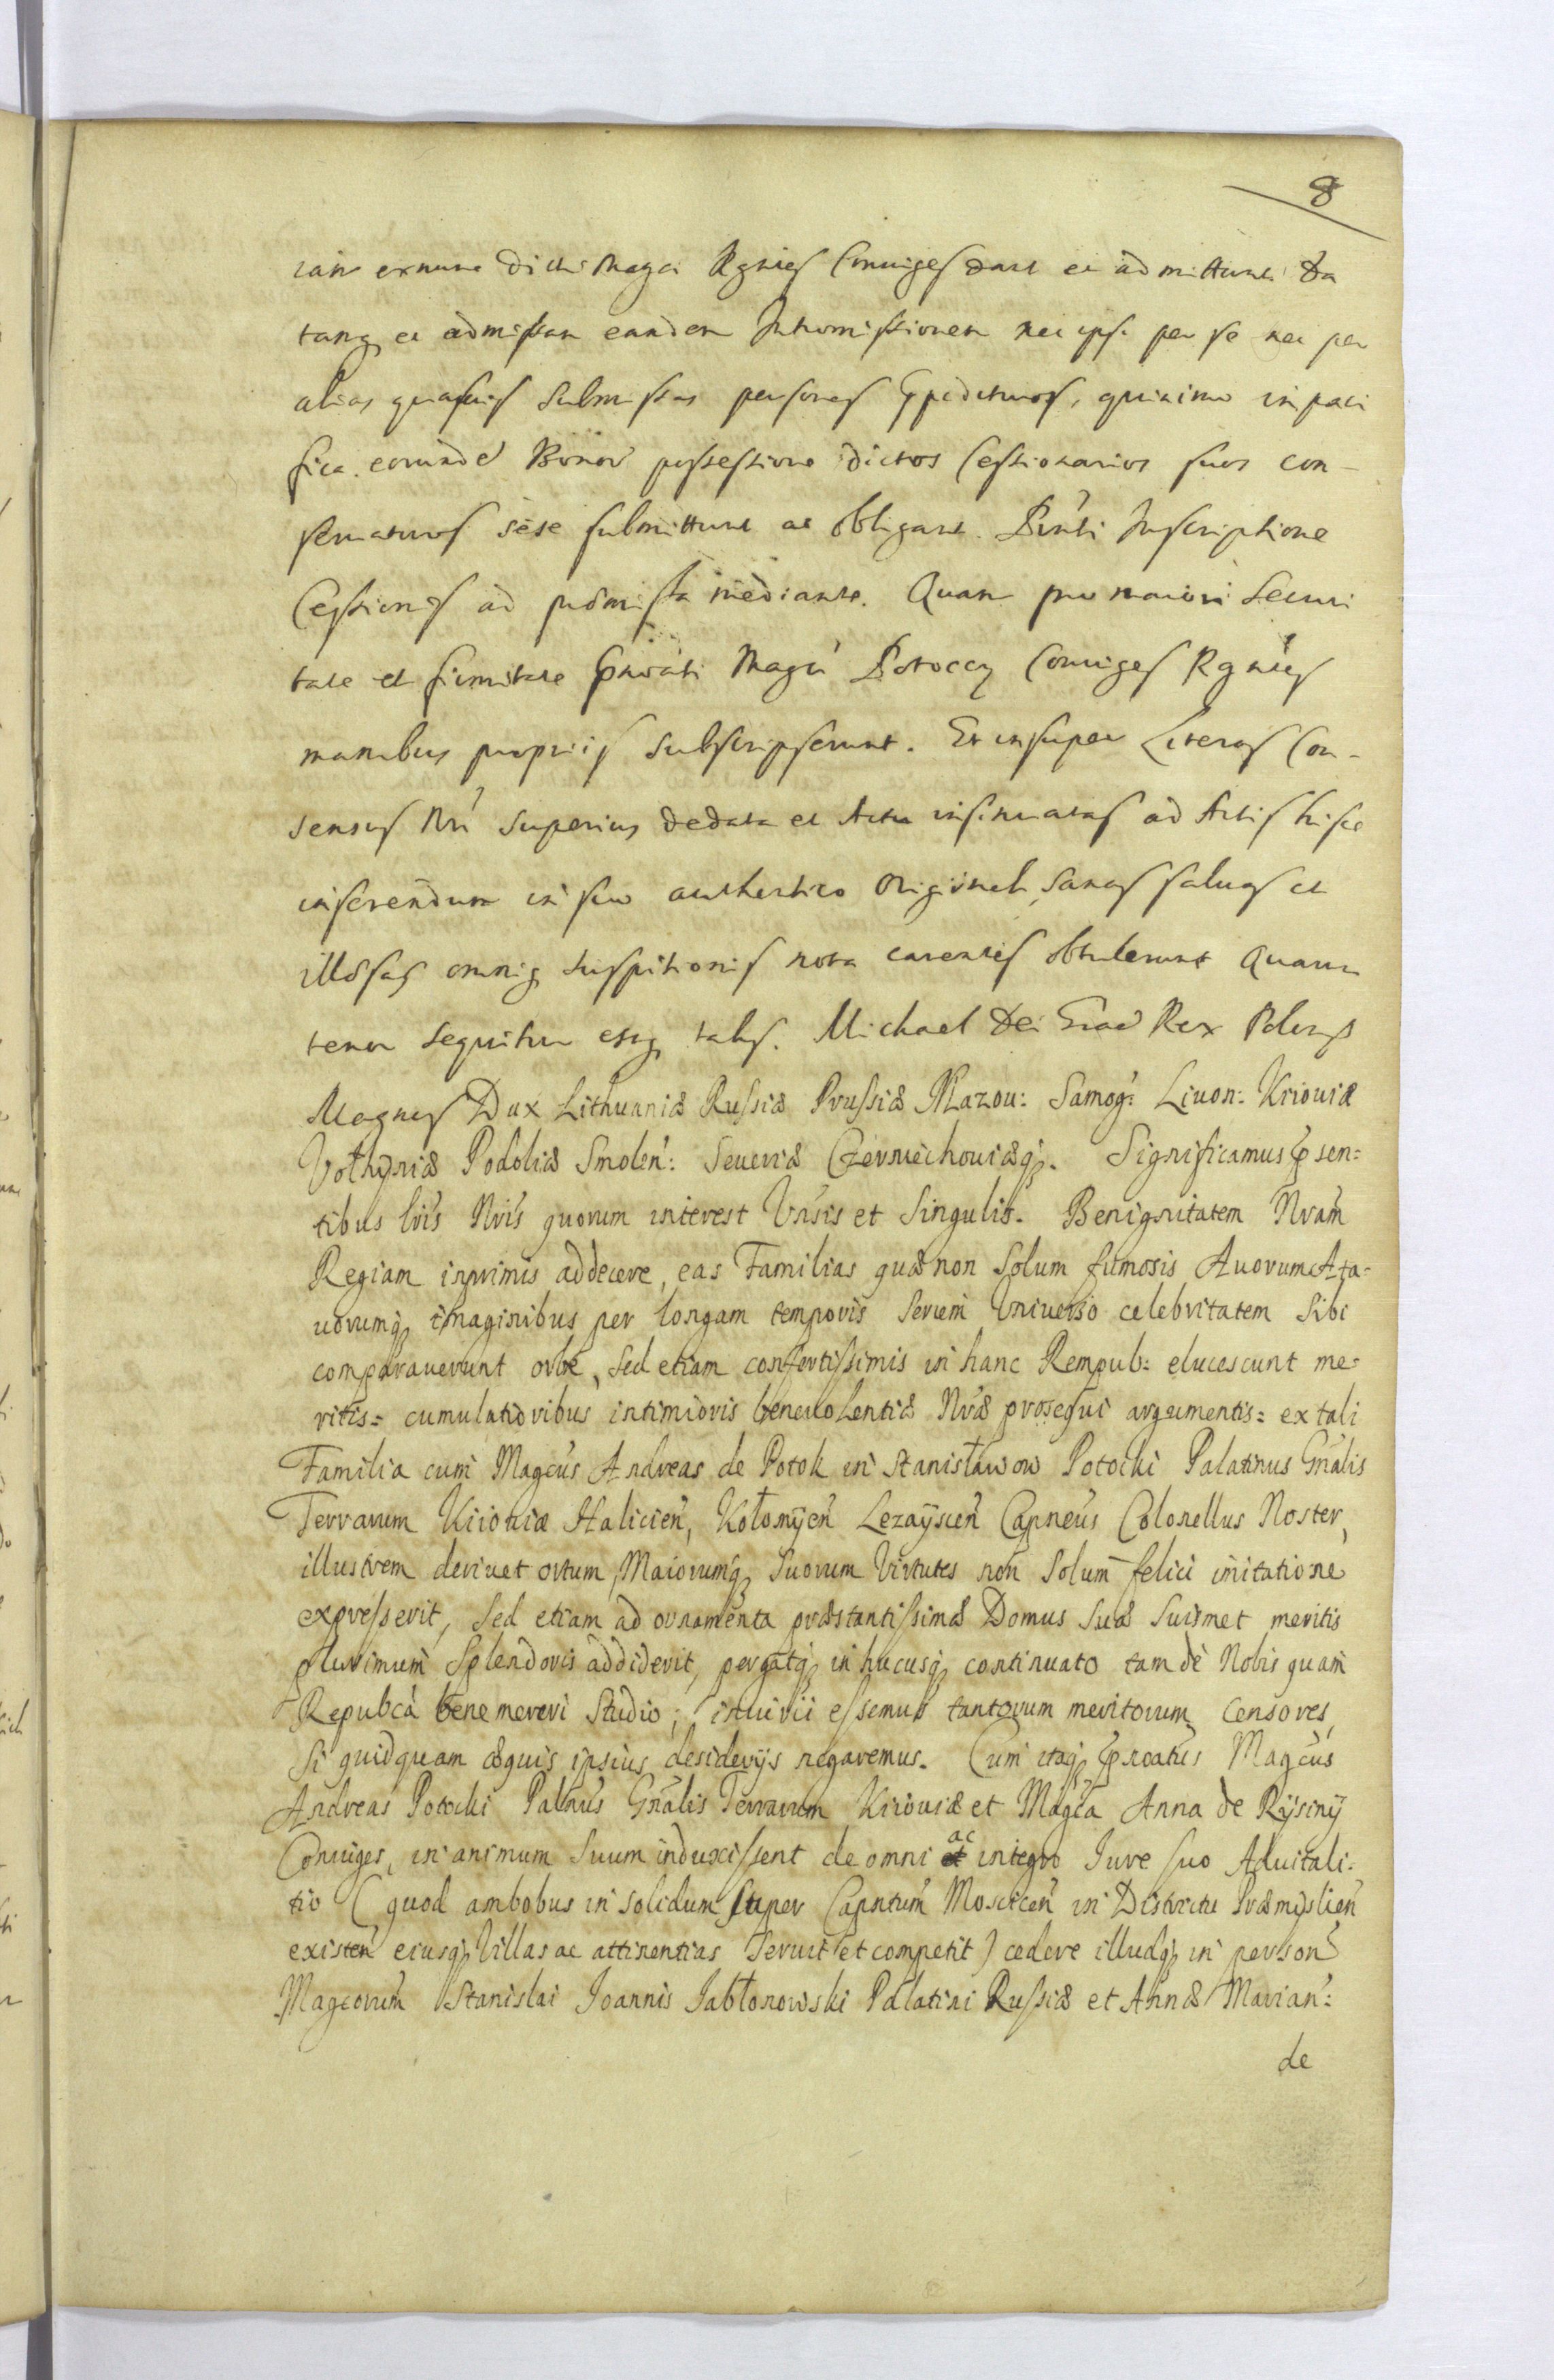 8
iam exnunc dicti Magci Rgntes Coniuges dant et admittunt da
tamq et admissam eandem Intromissionem nec ipsi per se nec per
alias quasuis submissas personas impedituros, quinimo in paci
fica eorunde Bonor possessione dictos Cessionarios suos con-
seruaturos sese submittunt ac obligant. Pñti Inscriptione
Cessionis ad præmissa mediante. Quam pro maiori securi
tate et firmitate pñoati Magci Potoccy Coniuges Rgntes
manibus proprijs subscripserunt. Et insuper Literas Con-
sensus Nri superius de data et Actu insinuatas ad Actis hisce
inserendum in suo authentico Originali, sanas saluas et
illæsas omniq suspitionis nota carentes obtulerunt Quarum
tenor sequitur estq talis. Michael Dei Gra Rex Poloniæ
Magnus Dux Lithuaniæ Russiæ Prussiæ Mazou: Samog: Liuon: Kiiouiæ
Vołhyniæ Podoliæ Smolen: Seueriæ Czerniechouiæq. Significamus p̃sen=
tibus lris Nris quorum interest Vnisis et Singulis. Benignitatem Nram
Regiam inprimis addecere, eas Familias quæ non Solum fumosis Auorum Ata=
uorumq imaginibus per longam temporis Seriem Vniuerso celebritatem Sibi
comparauerunt orbe, Sed etiam confertissimis in hanc Rempub: elucescunt me=
ritis= cumulatioribus intimioris beneuolentiæ Nræ prosequi argumentis= ex tali
Familia cum Magcus Andreas de Potok in Stanisławow Potocki Palatinus Gñalis
Terrarum Kiiouiæ Halicien, Kołomÿen Lezaÿscen Capneus Colonellus Noster,
illustrem deriuet ortum, Maiorumq Suorum Virtutes non Solum felici imitatione
expresserit, Sed etiam ad ornamenta præstantissimæ Domus Suæ Suismet meritis
plurimum Splendoris addiderit, pergatq in hucusq continuato tam de Nobis quam
Repubca bene mereri Studio; iniurii essemus tantorum meritorum Censores,
Si quidquam æquis ipsius desiderijs negaremus. Cum itaq p̃noatus Magcus
Andreas Potocki Palnus Gñalis Terrarum Kiiouiæ et Magca Anna de Rÿsinÿ
Coniuges, in animum Suum induxissent de omni ac integro Iure suo Aduitali=
tio (quod ambobus in Solidum Super Capntum Moscicen in Districtu Præmyslien
existen eiusq Villas ac attinentias Seruit et competit) cedere illudq in person
Magcorum Stanislai Joannis Jabłonowski Palatini Russiæ et Annæ Marian:
de